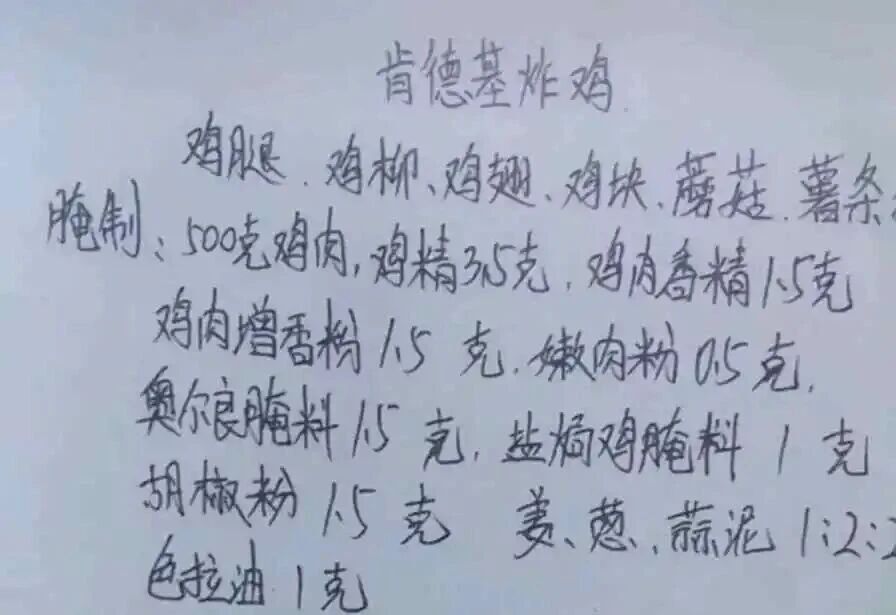 肯德基炸鸡
鸡腿、鸡柳、鸡翅、鸡块、蘑菇、薯条
腌制：500克鸡肉，鸡精3.5克，鸡肉香精1.5克
鸡肉增香粉1.5克，嫩肉粉0.5克，
奥尔良腌料1.5克，盐焗鸡腌料1克
胡椒粉1.5克 姜、葱、蒜泥1:2:2
色拉油1克